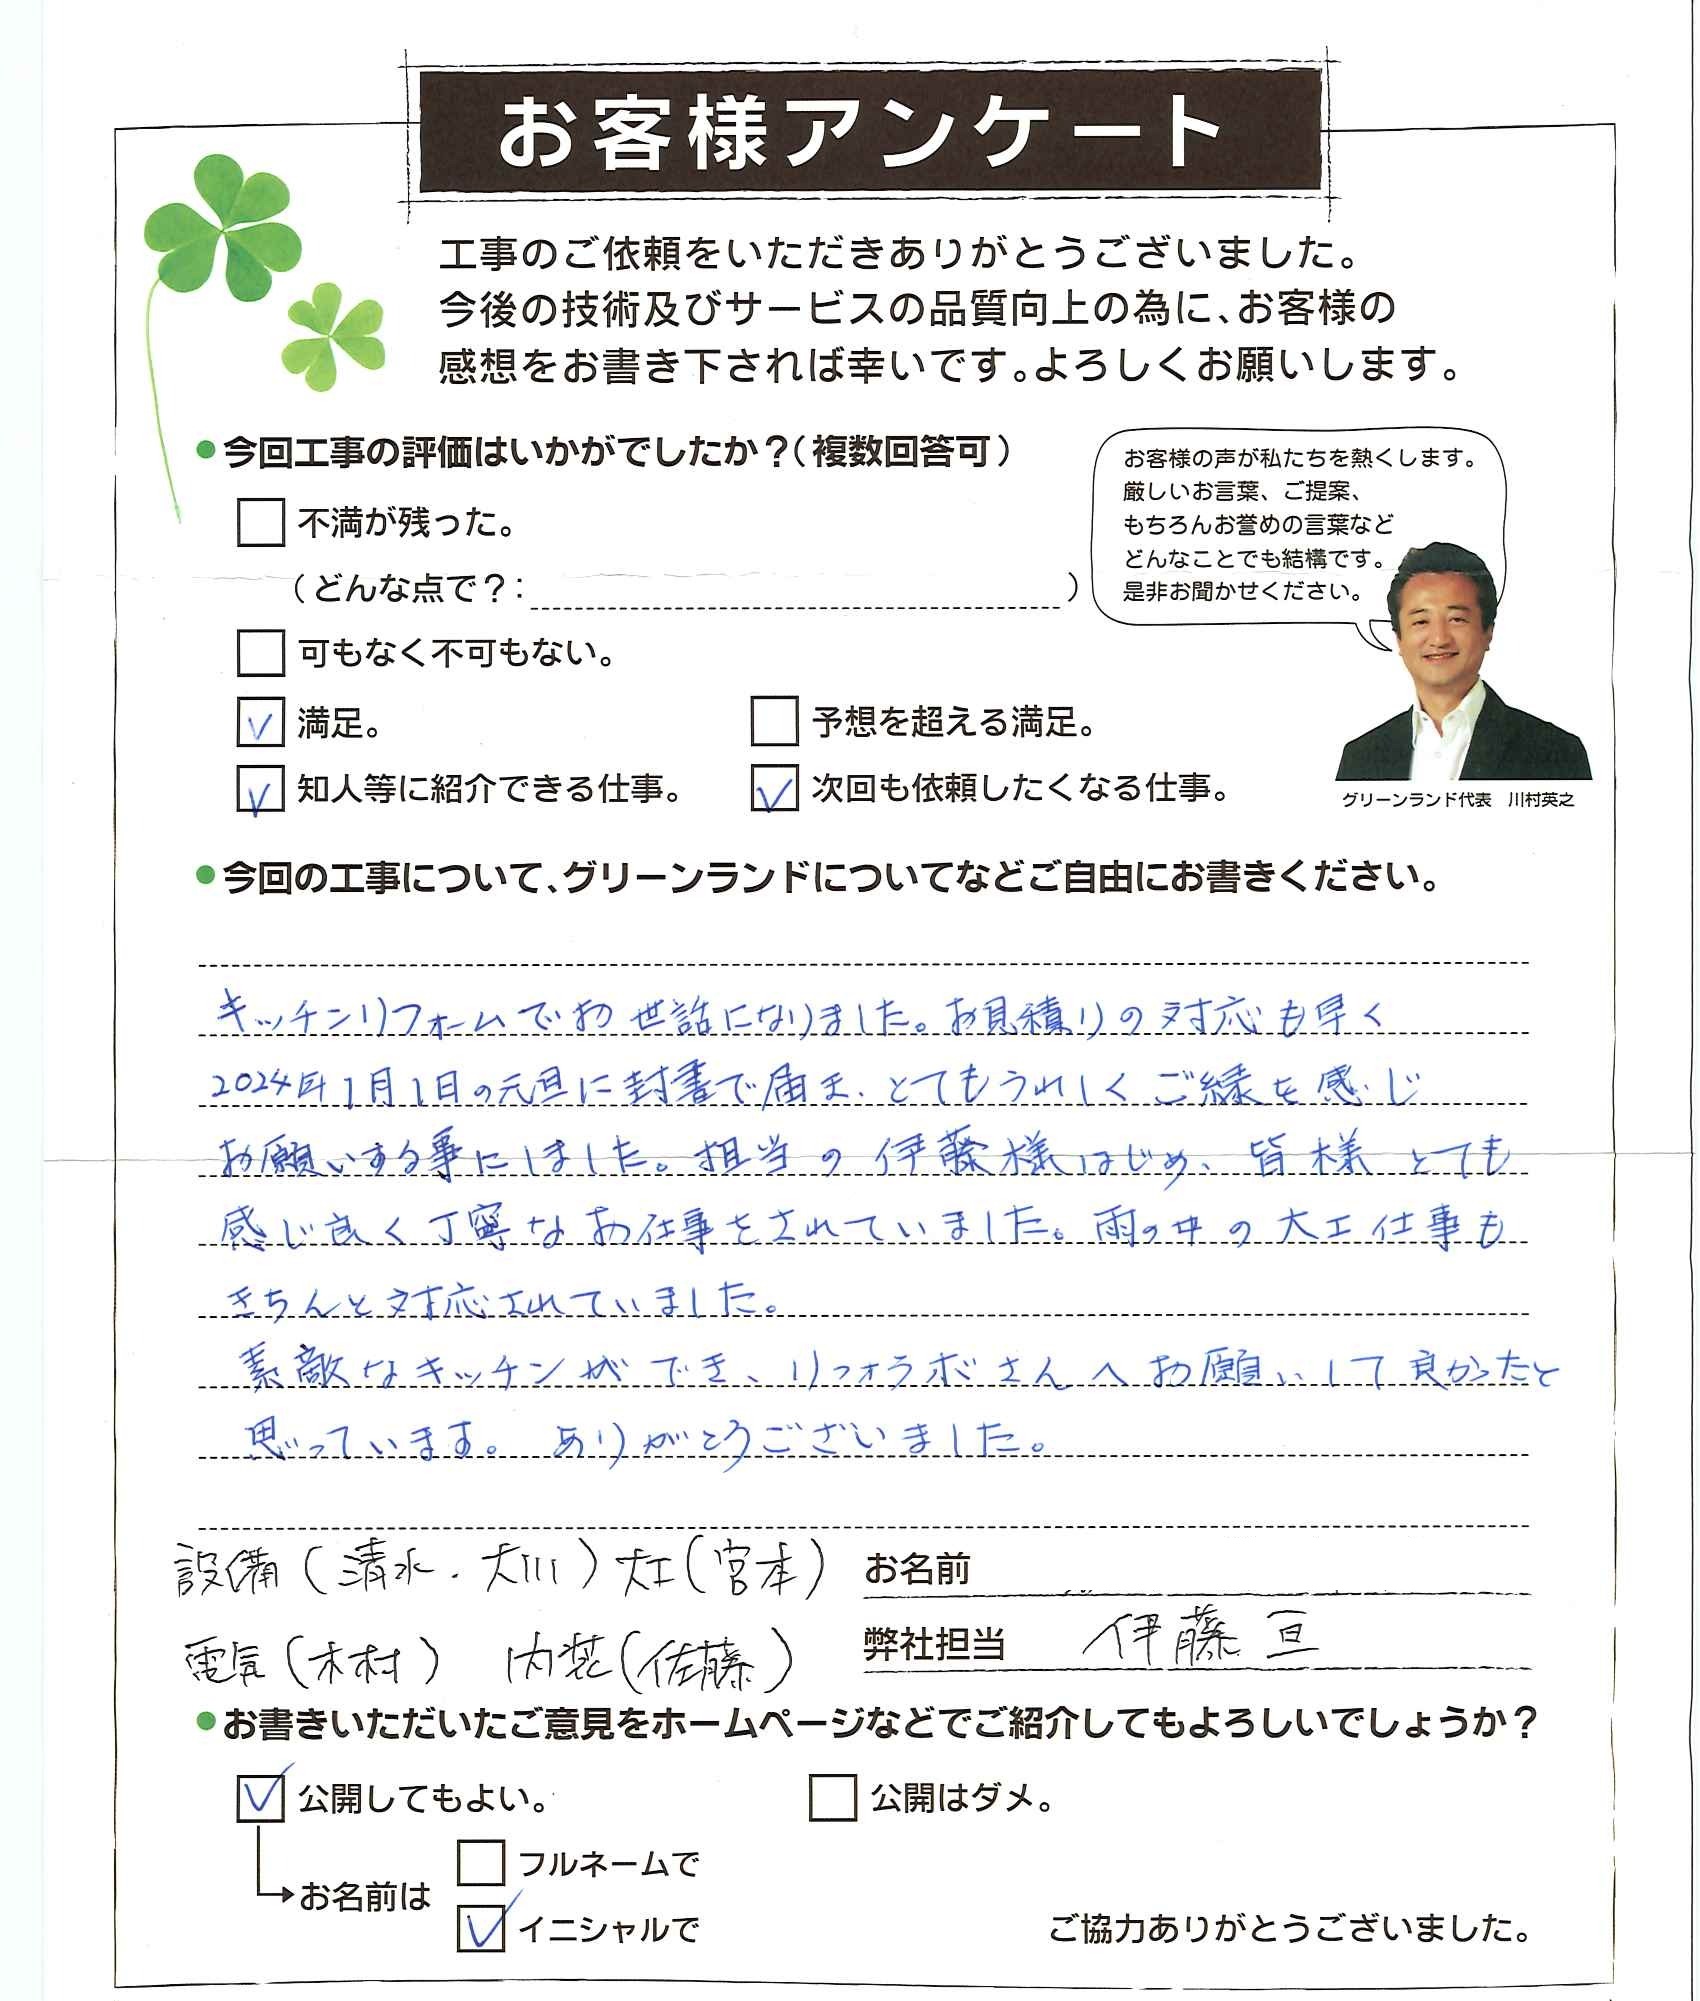 お客様アンケート
工事のご依頼をいただきありがとうございました。
今後の技術及びサービスの品質向上の為に、お客様の
感想をお書き下されば幸いです。よろしくお願いします。
●今回工事の評価はいかがでしたか？（複数回答可）
お客様の声が私たちを熱くします。
厳しいお言葉、ご提案、
もちろんお誉めの言葉など
どんなことでも結構です。
是非お聞かせください。
グリーンランド代表　川村英之
不満が残った。
（どんな点で？：　）
可もなく不可もない。
満足。
予想を超える満足。
知人等に紹介できる仕事。
次回も依頼したくなる仕事。
●今回の工事について、グリーンランドについてなどご自由にお書きください。
キッチンリフォームでお世話になりました。お見積りの対応も早く
2024年1月1日の元旦に封書で届き、とてもうれしくご縁を感じ
お願いする事にしました。担当の伊藤様はじめ、皆様とても
感じ良く丁寧なお仕事をされていました。雨の中の大工仕事も
きちんと対応されていました。
素敵なキッチンができ、リフォラボさんへお願いして良かったと
思っています。ありがとうございました。
設備（清水・大川）大工（宮本）
お名前
電気（木村）　内装（佐藤）
弊社担当　伊藤 亘
●お書きいただいたご意見をホームページなどでご紹介してもよろしいでしょうか？
公開してもよい。
公開はダメ。
お名前は
フルネームで
イニシャルで
ご協力ありがとうございました。